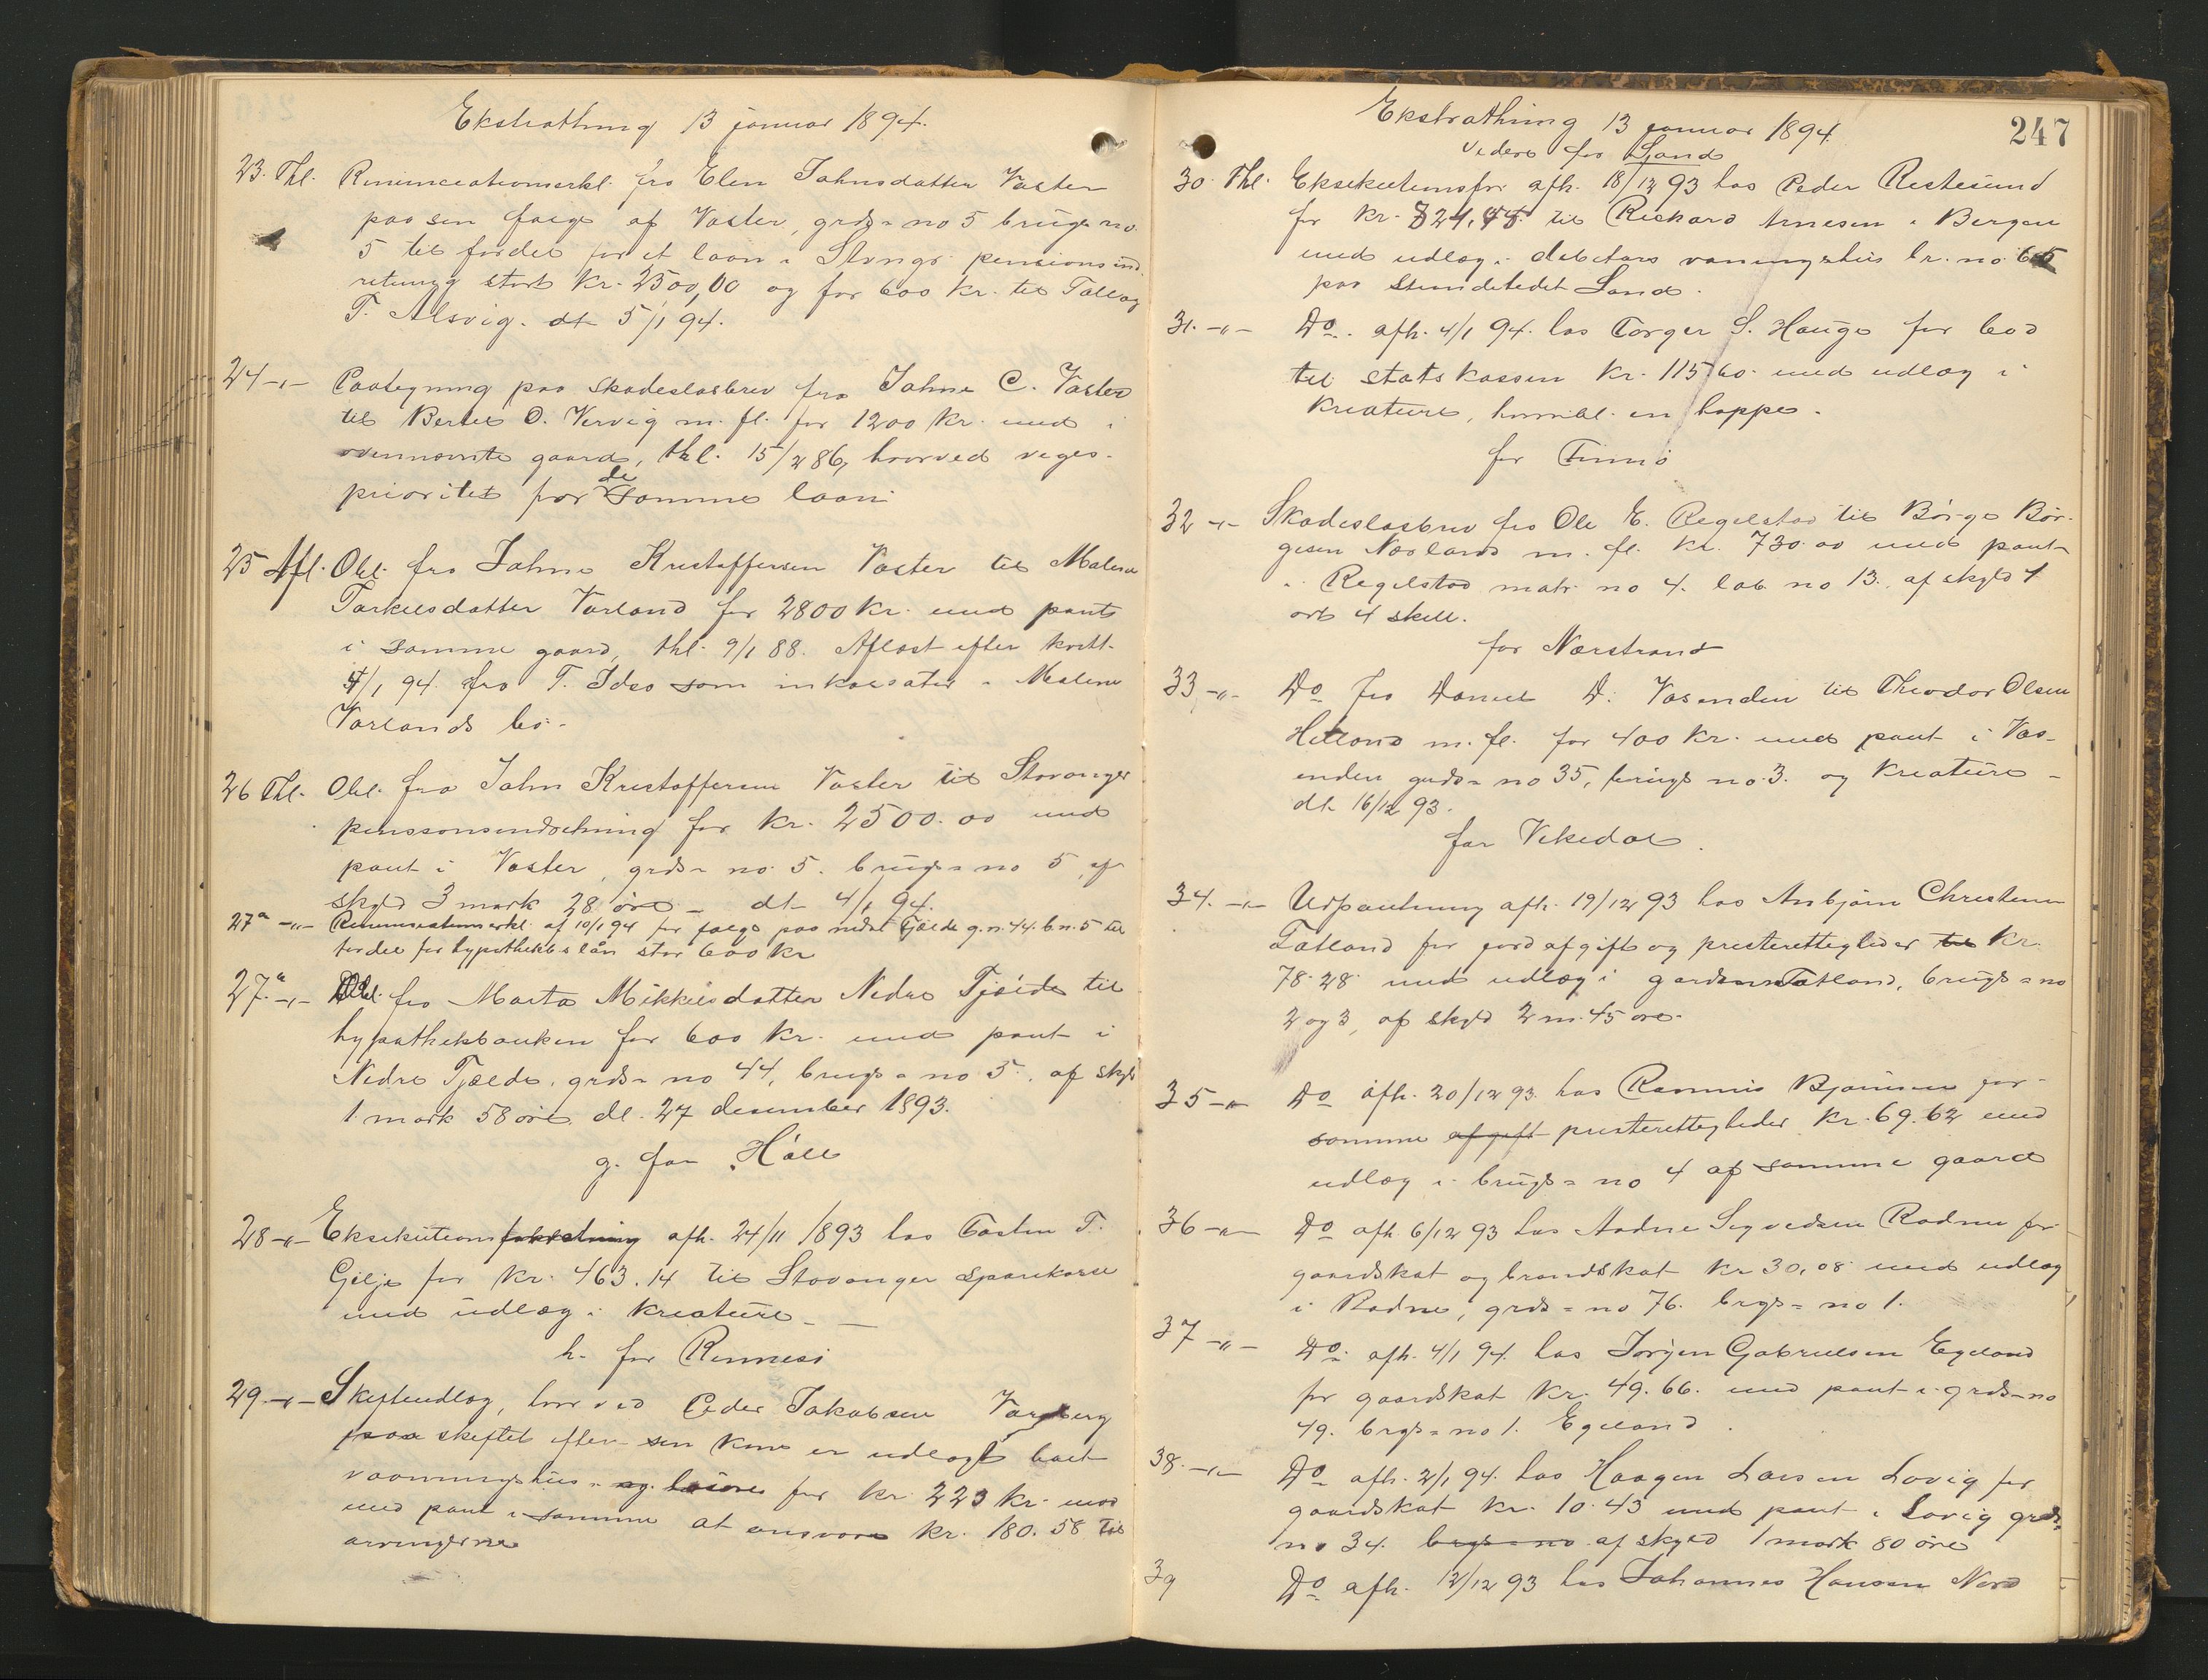 Ekstrathing 13 januar 1894.
23. Thl. Renunciationserkl. fra Elen Johnsdatter Vaster
paa sin fæige af Vaster, grds= no 5 brugs no
5 til fordel for et laan i Stvngr pensionsind.
retning stort kr. 2500,00 og for 600 kr. til Tallag
T. Alsvig. dt 5/1 94.
24 -"- Paategning paa skadesløsbrev fra Johne C. Vaster
til Bertel O. Vervig m. fl. for 1200 kr. med i
ovennævnte gaard, thl. 15/2 86, hvorved viges
prioritet for de samme laan
25 Afl. Obl. fra Johne Kristoffersen Vaster til Malene
Torkelsdatter Varland for 2800 kr. med pant
i samme gaard, thl. 9/1 88. Aflæst efter kvitt.
4/1 94 fra T. Idsø som inkassator i Malene
Varlands bo.
26 Thl. Obl. fra John Kristoffersen Vaster til Stavanger
penssonsindretning for kr. 2500.00 med
pant i Vaster, grds= no 5. brugs= no 5, af
skyld 3 mark 28 øre - dt 4/1 94.
27a -"- Renunciationserkl. af 10/1 94 for fæige paa nedre Tjælde g.n. 44. b.n. 5 til
fordel for hypothekb s lån stor 600 kr
27.a -"- Obl. fra Marta Mikkelsdatter Nedre Tjælde til
hypothekbanken for 600 kr. med pant i
Nedre Tjælde, grds= no 44, brugs= no 5. af skyld
1 mark 58 øre, dt. 27 desember 1893.
g. for Hålē
28 -"- Eksekutionsforretning afh. 24/11 1893 hos Tosten T.
Gilje for kr. 463.14 til Stavanger sparekasse
med udlæg i kreature -
h. for Rennesø
29. -"- Skifteudlæg, hvorved Peder Jakobsen Vargberg
paa skiftet efter sin kone er udlagt boets
vaaningshus og løsøre for kr. 223 kr. mod
med pant i samme at ansvare kr. 180.58 til
arvingerne
247
Ekstrathing 13 januar 1894.
videre for Sand
30. Thl. Eksekutionsfor. afh. 18/12 93 hos Peder Restesund
for kr. 824,45 til Rickard Arnesen i Bergen
med udlæg i debitors vaningshus br. no 65
paa strandstedet Sand.
31. -"- Do. afh. 4/1 94. hos Torger S. Hauge for bod
til statskassen kr. 115.60. med udlæg i
kreature, hvoribl. en hoppe.
for Finnø
32 -"- Skadesløsbrev fra Ole E. Regelstad til Børge Bør-
gesen Næsland m. fl. kr. 730.00 med pant
i Regelstad matr. no 4. løb. no 13. af skyld 1
ort 4 skill.
for Nærstrand
33 -"- Do fra Daniel D. Vasenden til Theodor Olsen
Hetland m. fl. for 400 kr. med pant i Vas-
enden grds= no 35, brugs no 3. og kreature -
dt. 16/12 93.
for Vikedal.
34. -"- Udpantning afh. 19/12 93 hos Anbjørn Christensen
Tatland for jordafgift og presterettigheder til kr.
78.28 med udlæg i garden Tatland, brugs= no
2 og 3, af skyld 2 m. 45 øre.
35 -"- Do afh. 20/12 93. hos Rasmus Bjørnsen for
samme afgift presterettigheder kr. 69.62 med
udlæg i brugs= no 4 af samme gaard
36 -"- Do afh. 6/12 93 hos Aadne Sigvedsen Rødne for
gaardskat og brandskat kr 30,08 med udlæg
i Rødne, grds= no 76. brgs= no 1.
37 -"- Do. afh. 4/1 94. hos Jørgen Gabrielsen Egeland
for gaardskat kr. 49.66. med pant i grds= no
49. brgs= no 1. Egeland.
38. -"- Do afh. 2/1 94. hos Haagen Larsen Løvig for
gaardskat kr. 10.43 med pant i Løvig grds=
no 34. brgs= no af skyld 1 mark 80 øre
39 Do afh. 12/12 93 hos Johannes Hansen Nord